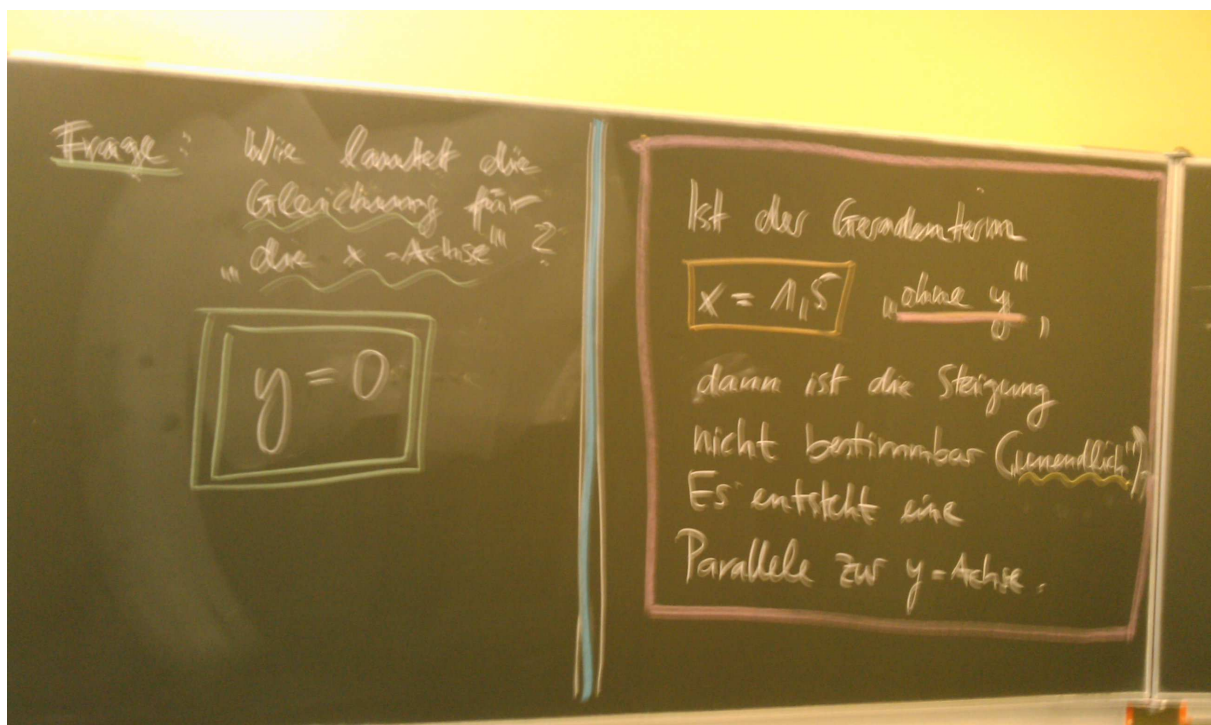 Frage: Wie lautet die
Gleichung für
„die x-Achse"?
y = 0
Ist der Geradenterm
x = 1,5 „ohne y",
dann ist die Steigung
nicht bestimmbar („unendlich").
Es entsteht eine
Parallele zur y-Achse.